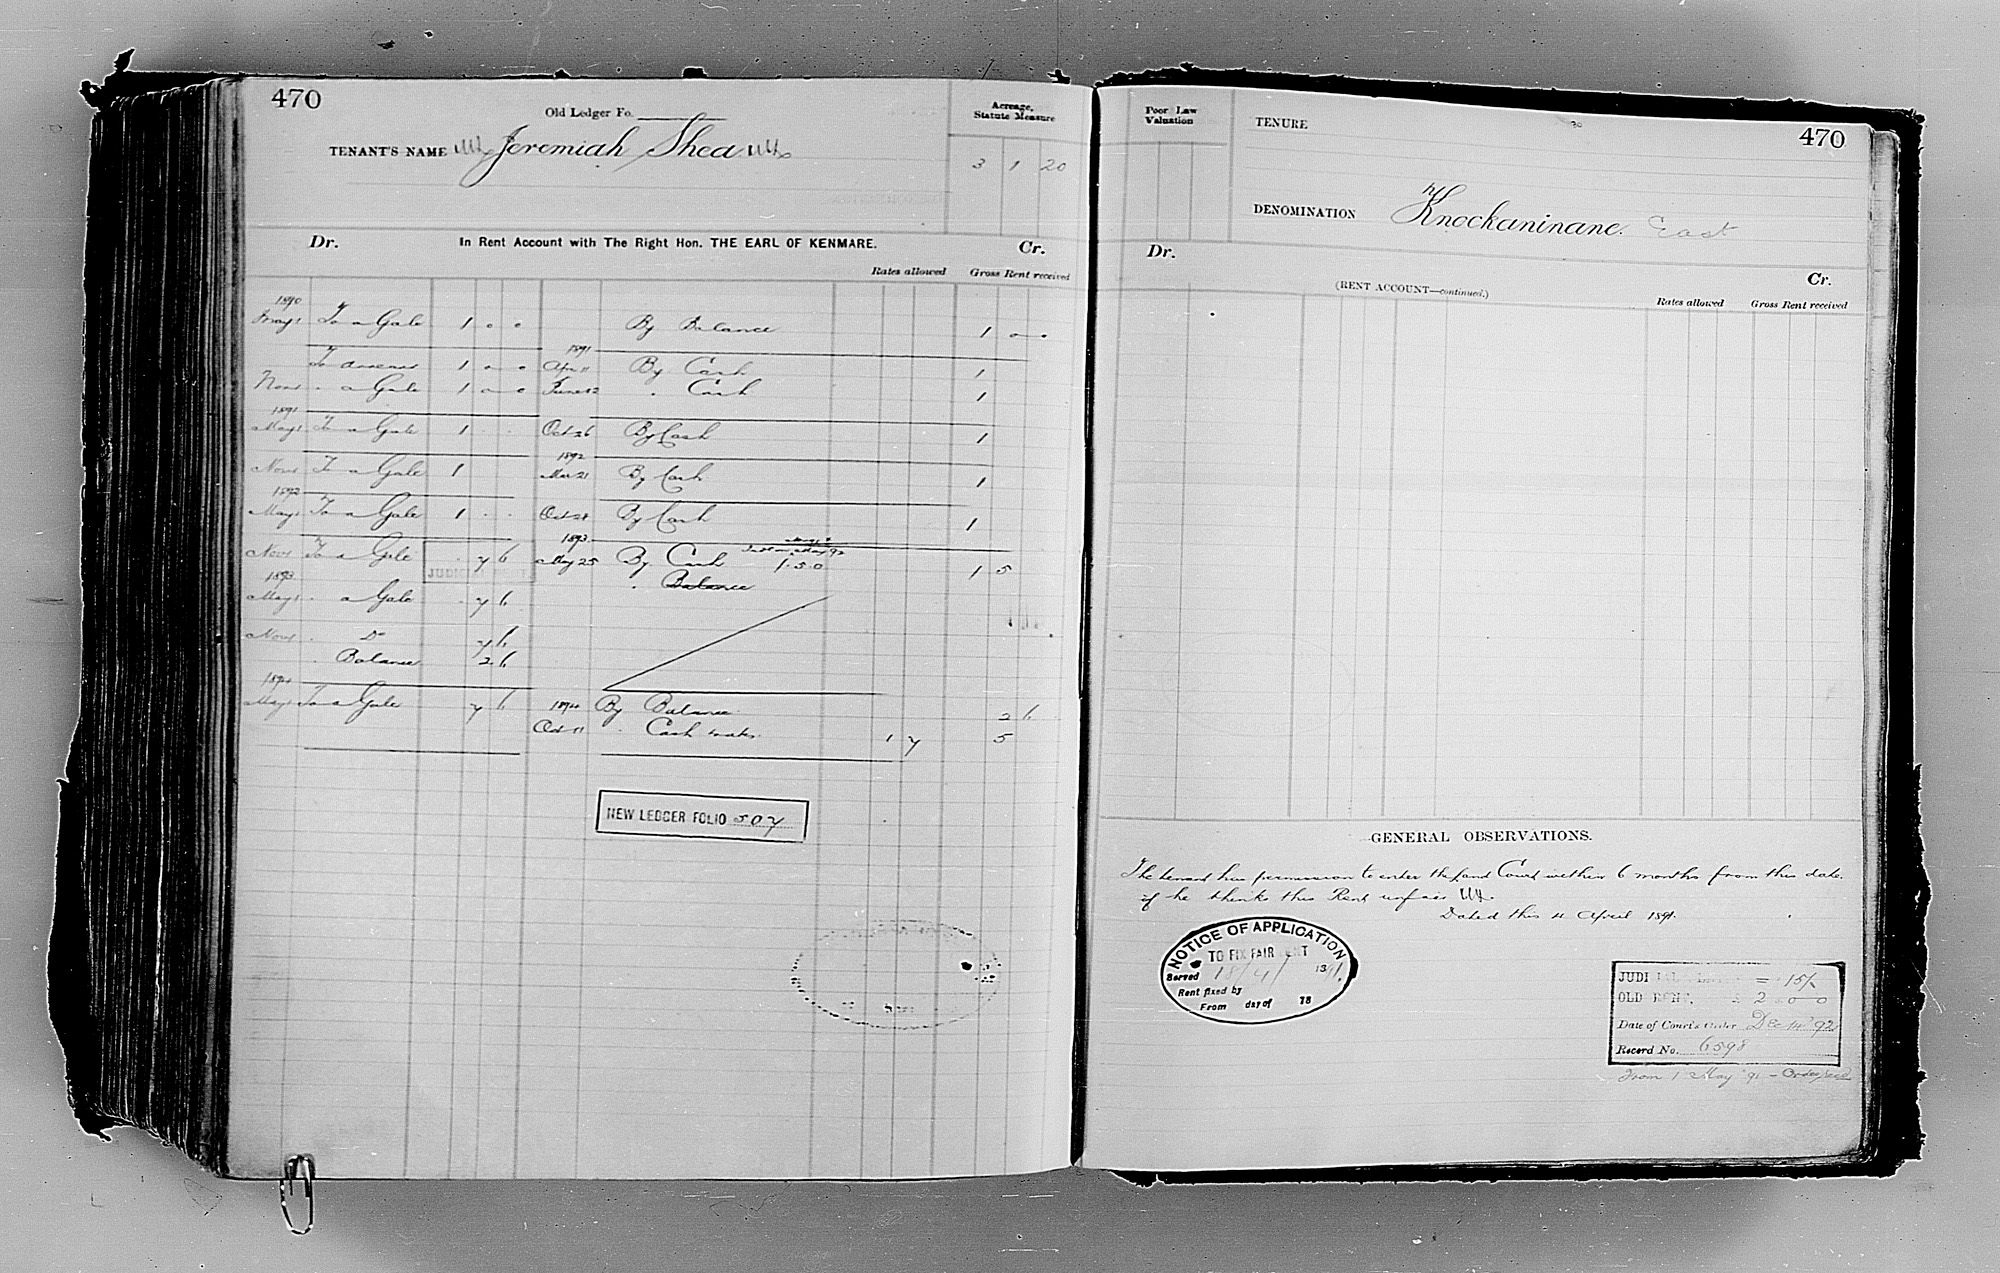 470
Old Ledger Fo.
TENANT'S NAME Jeremiah Shea
Acreage, Statute Measure
3 1 20
Dr. In Rent Account with The Right Hon. THE EARL OF KENMARE. Cr.
Rates allowed Gross Rent received
1890
May 1 To a Gale 1 0 0 By Balance 1 0 0
1891
To arrears 1 0 0 Apr 11 By Cash 1
Nov 1 " a Gale 1 0 0 June 12 " Cash 1
1891
May 1 To a Gale 1 . . Oct 26 By Cash 1
1892
Nov 1 To a Gale 1 Mar 21 By Cash 1
1892
May 1 To a Gale 1 . . Oct 21 By Cash 1
1893
Nov 1 To a Gale . 7 6 May 25 By Cash 1.5.0 1 5
" Balance
1893
May 1 . a Gale . 7 6
Nov 1 . Do 7 6
. Balance 2.6
1894
May 1 To a Gale 7 6 1894 By Balance 2 6
Oct 11 . Cash 1 7 5
NEW LEDGER FOLIO 507
Poor Law Valuation
TENURE
470
DENOMINATION Knockaninane East
Dr. Cr.
(RENT ACCOUNT—continued.)
Rates allowed Gross Rent received
GENERAL OBSERVATIONS.
The tenant has permission to enter the Land Court within 6 months from this date
if he thinks this Rent unfair
Dated this 11 April 1891.
NOTICE OF APPLICATION
TO FIX FAIR RENT
Served 18/4/ 1891.
Rent fixed by
From day of 18
JUDICIAL = 15/-
OLD RENT, £ 2 0 0
Date of Court's Order Dec 14 '92
Record No. 6598
From 1 May '91 -